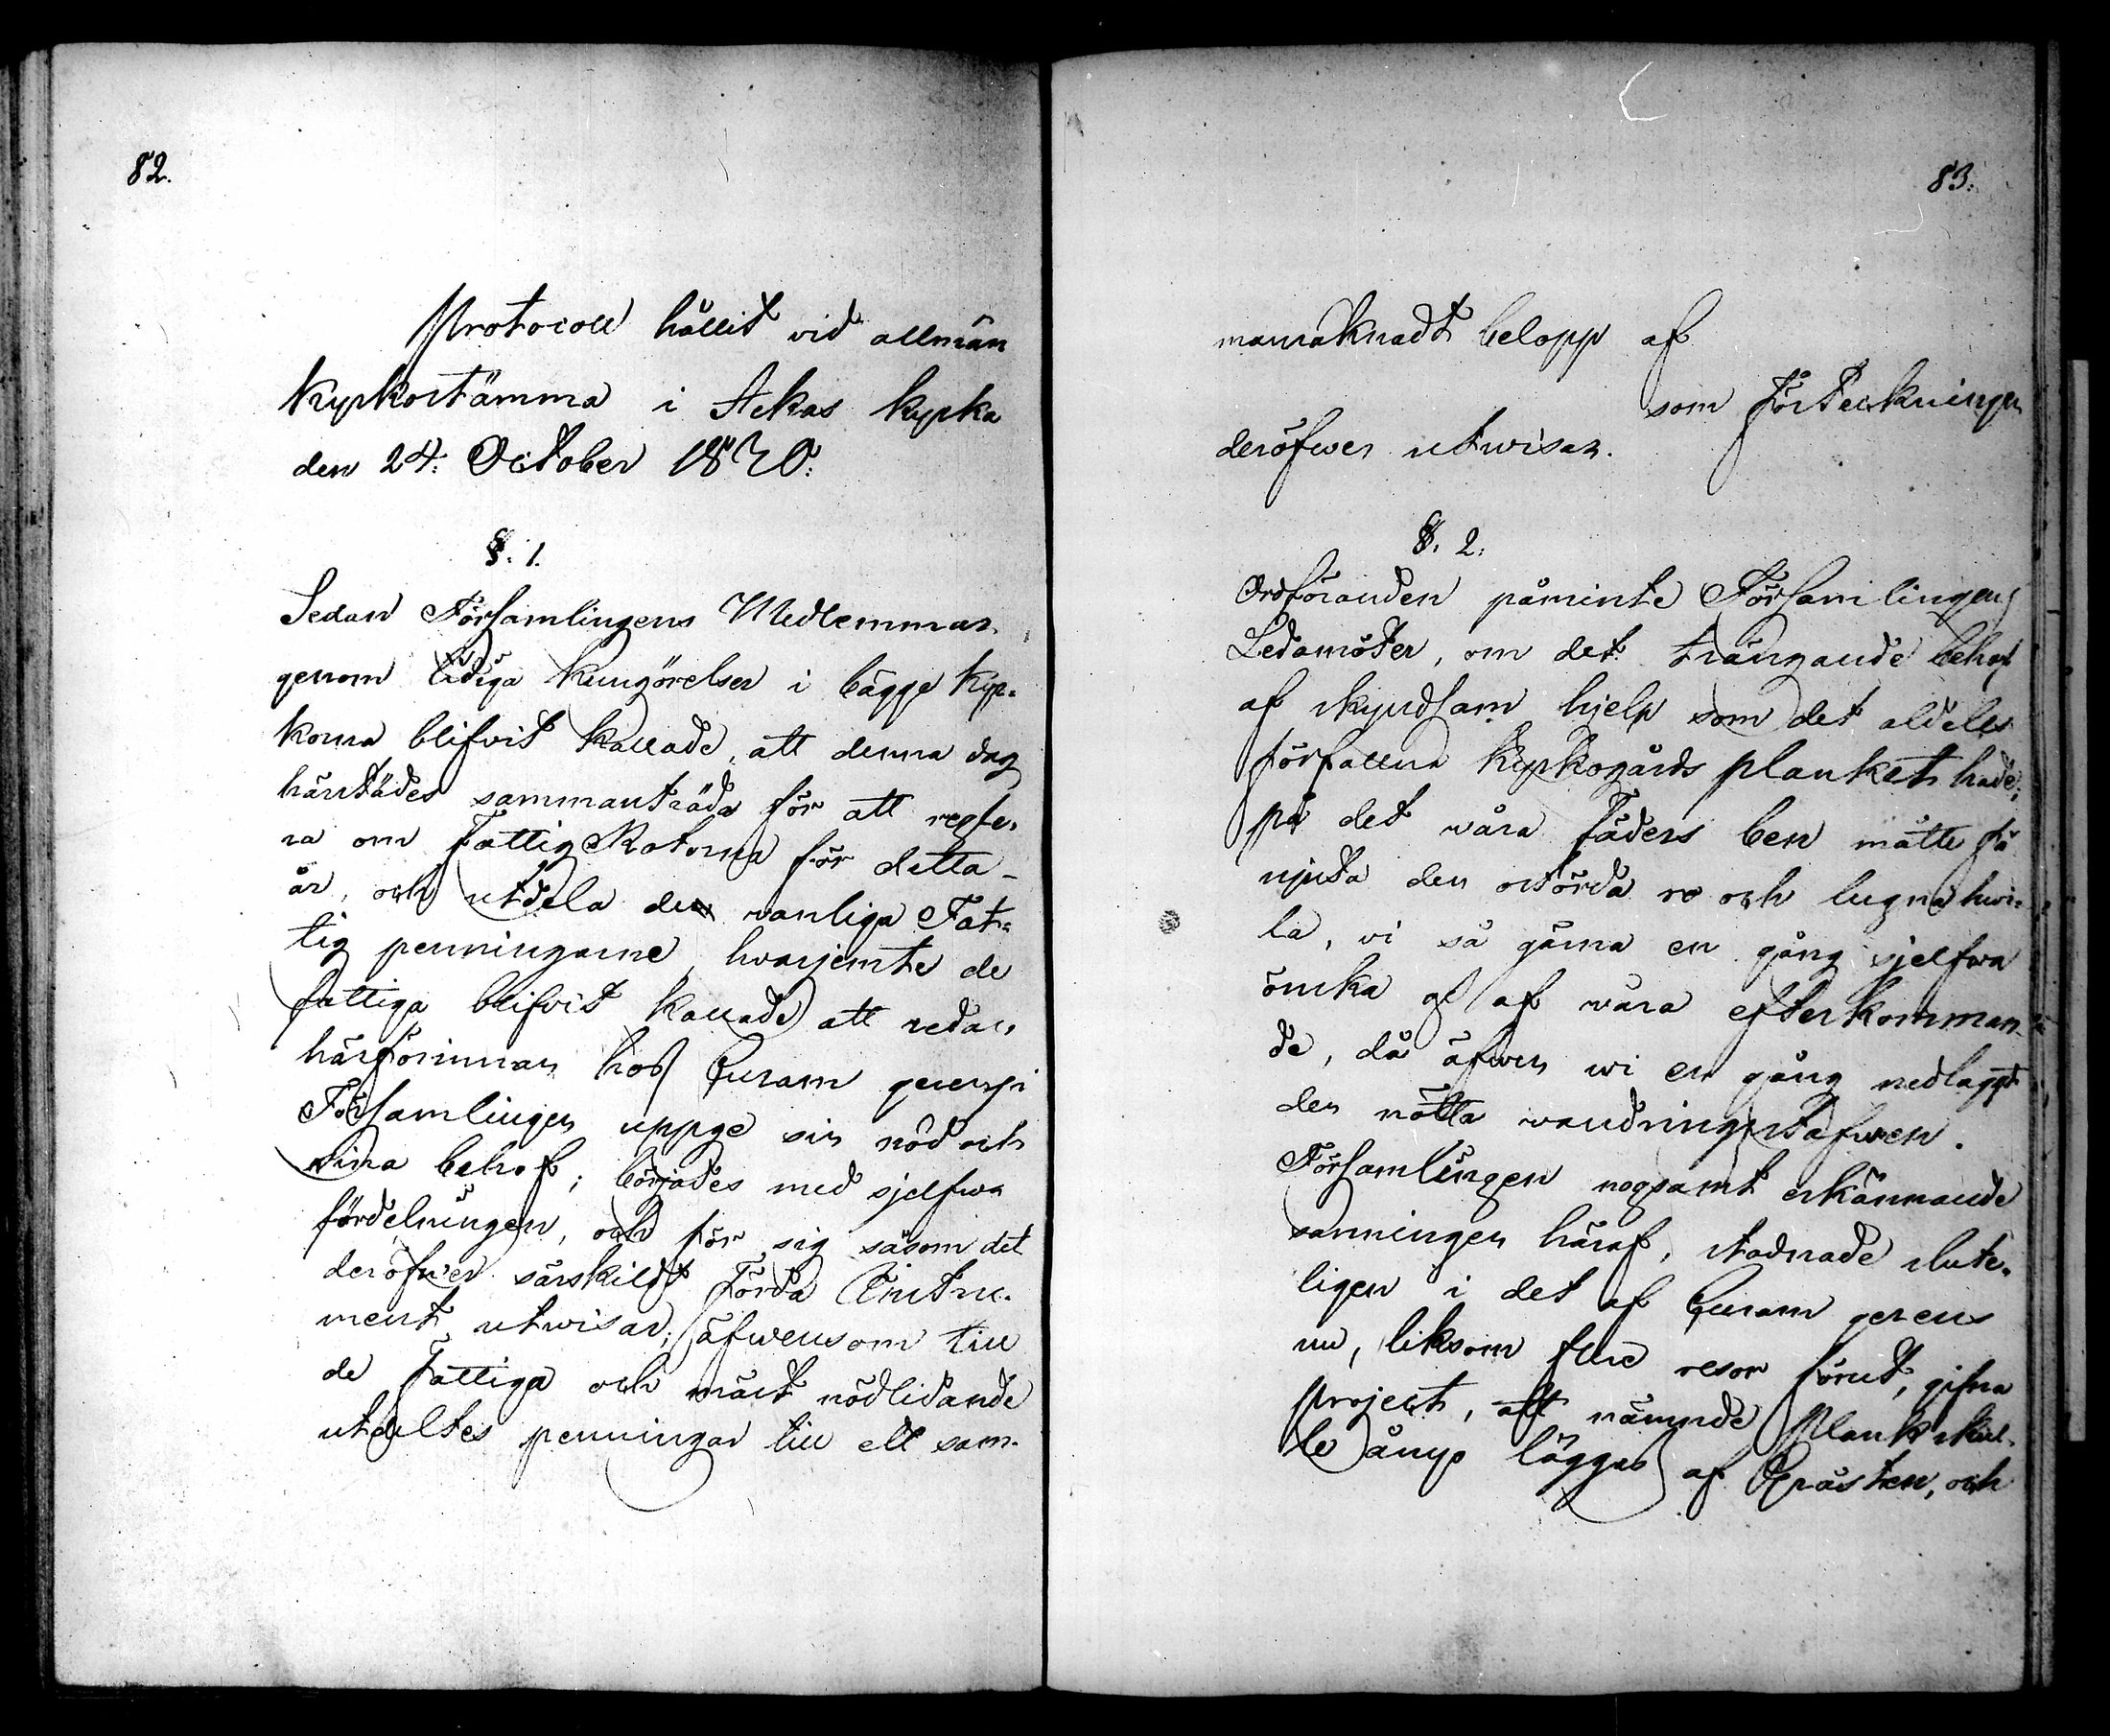 82.
Protocoll hållit vid allmän
Kyrkostämma i Ackas Kyrka
den 24: October 1830:
§. 1.
Sedan Församlingens Medlemmar
genom tidiga kungörelser i bägge Kyr-
korna blifvit kallade, att denna dag
härstädes sammanträda för att regle-
ra om FattigRotorna för detta
år, och utdela de vanliga Fat-
tig penningarne, hvarjemte de
fattiga blifvit kallade att redan
härförinnan hos Curam gerens i
Församlingen uppge sin nöd och
sina behof; börjades med sjelfwa
fördelningen, och för sig såsom det
deröfwer särskildt förda Instru-
ment utwisar; äfwensom till
de fattiga och mäst nödlidande
utdeltes penningar till ett sam-
83.
manräknadt belopp af
som förteckningen
deröfwer utwisar.
§. 2.
Ordföranden påminte Församlingens
Ledamöter, om det trängande behof
af skyndsam hjelp som det aldeles
förfallna Kyrkogårds planket hade;
på det wåra fäders ben måtte få
njuta den ostörda ro och lugna hwi-
la, vi så gärna en gång sjelfwa
önska oss af wåra efterkomman-
de, då äfwen wi en gång nedlaggt
den nötta wandringsstafwen.
Församlingen nogsamt erkännande
sanningen häraf, stadnade slute-
ligen i det af Curam gerens
nu, liksom flere resor förut, gifna
project, att nämnde Plank skul-
le ånyo läggas af Gråsten, och